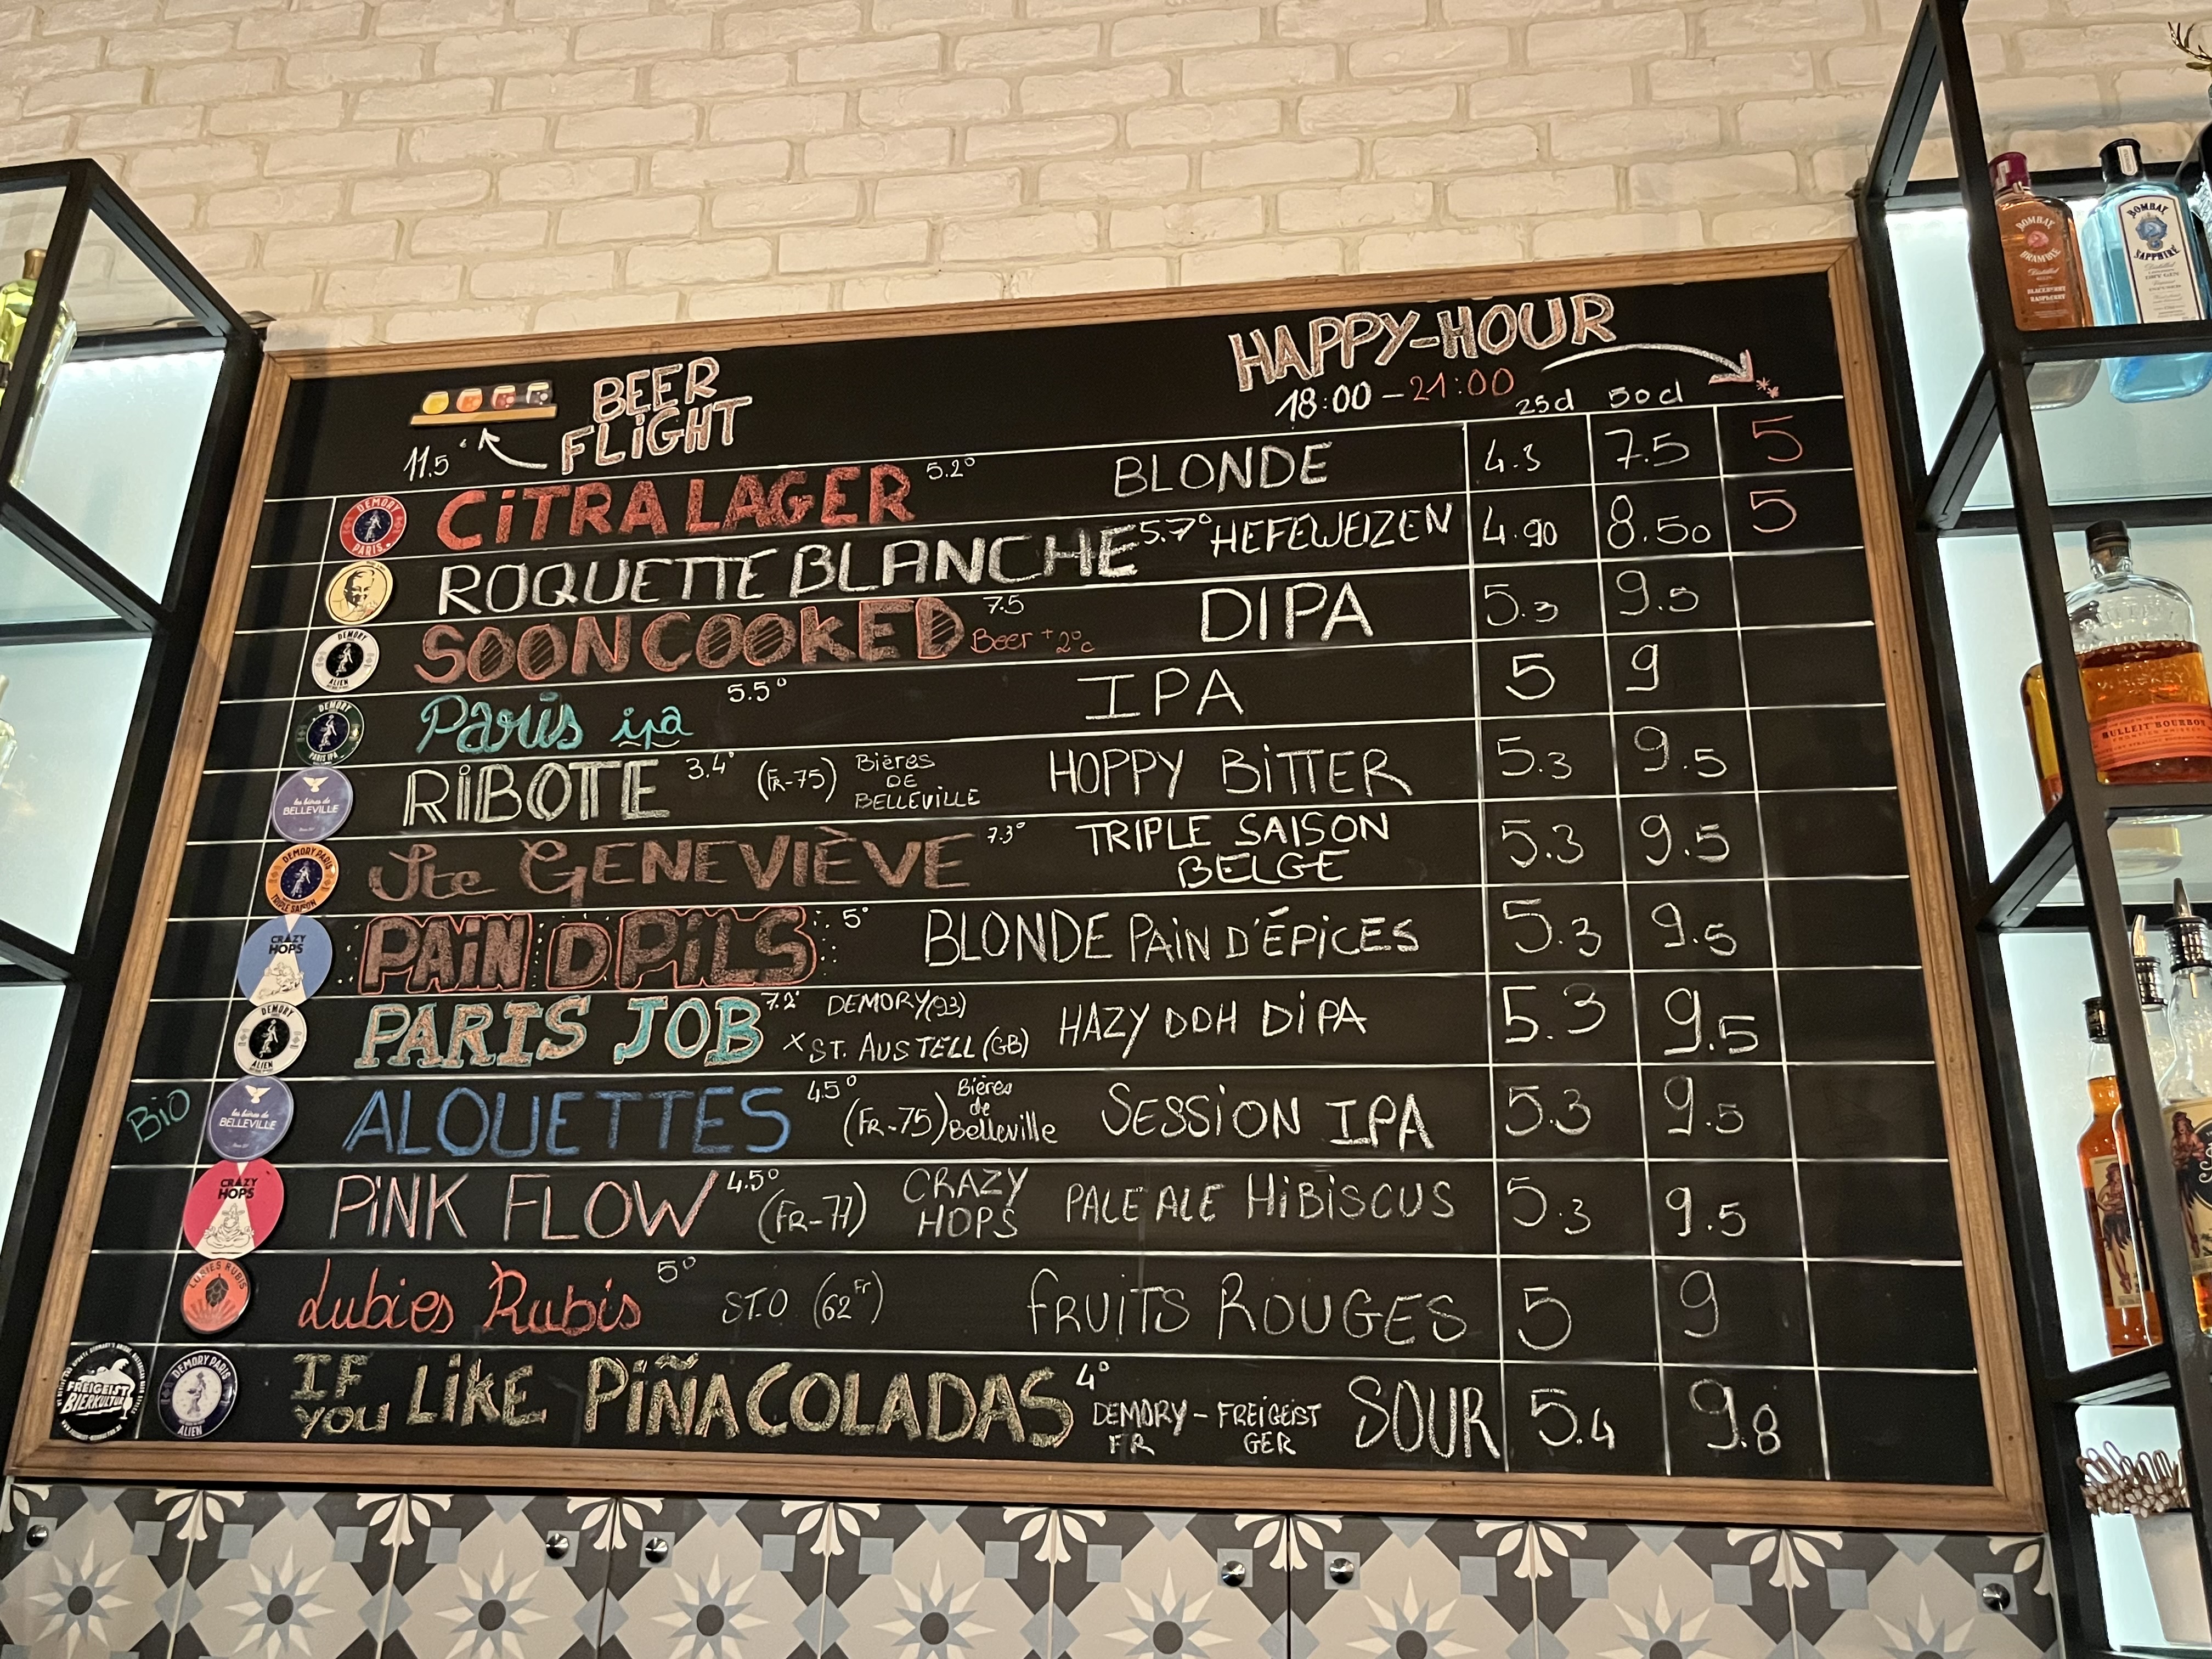 BEER
FLiGHT
11.5
HAPPY-HOUR
18:00 – 21:00
25cl 50cl **
DEMORY PARIS CiTRA LAGER 5.2° BLONDE 4.3 7.5 5
ROQUETTE BLANCHE 5.7° HEFEWEIZEN 4.90 8.50 5
DEMORY ALIEN SOON COOKED 7.5 Beer +2°c DIPA 5.3 9.5
DEMORY PARIS IPA Paris ipa 5.5° IPA 5 9
les bières de BELLEVILLE RiBOTE 3.4° (FR-75) Bières DE BELLEVILLE HOPPY BiTTER 5.3 9.5
DEMORY PARIS TRIPLE SAISON Ste GENEVIÈVE 7.3° TRIPLE SAISON BELGE 5.3 9.5
CRAZY HOPS PAiN D PiLS 5° BLONDE PAiN D'ÉPiCES 5.3 9.5
DEMORY ALIEN PARIS JOB 7.2° DEMORY(93) x ST. AUSTELL (GB) HAZY DDH DiPA 5.3 9.5
BiO les bières de BELLEVILLE ALOUETTES 4.5° (FR-75) Bières de Belleville SESSION IPA 5.3 9.5
CRAZY HOPS PiNK FLOW 4.5° (FR-77) CRAZY HOPS PALE ALE HiBiSCUS 5.3 9.5
LUBIES RUBIS Lubies Rubis 5° ST.O (62 Fr) FRUiTS ROUGES 5 9
FREIGEIST BIERKULTUR DEMORY PARIS ALIEN IF YOU LiKE PiÑA COLADAS 4° DEMORY – FREiGEiST FR GER SOUR 5.4 9.8
BOMBAY BRAMBLE
Distilled
BLACKBERRY
RASPBERRY
BOMBAY SAPPHIRE
Distilled
WHISKEY
BULLEIT BOURBON